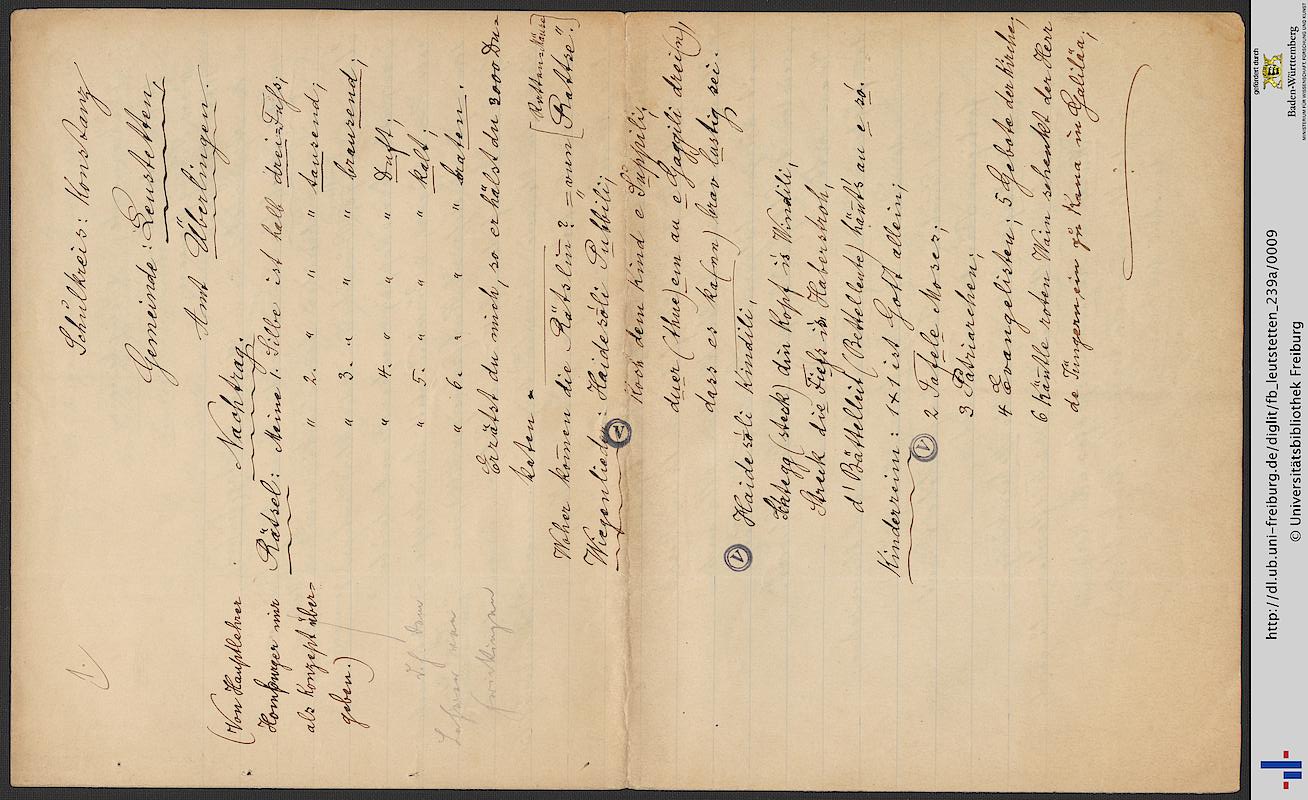 1.
Schulkreis: Konstanz
Gemeinde: Leustetten.
Amt Überlingen.
Nachtrag.
(Von Hauptlehrer
Homburger mir
als Konzept über-
geben.)
Rätsel: Meine 1. Silbe ist halb drei-Fuss;
" 2. " " " tausend;
" 3. " " " brausend;
" 4. " " " Duft;
" 5. " " " kalt;
" 6. " " " braten.
Errätst du mich, so erhälst du 2000 Du-
katen.
Woher kommen die Rätslin? = vun
Wiegenlieder: Haidesöli
Koch dem Kind e Süppili;
duer (thue) ein au e Gaggili drei(n),
dass es ka(nn) brav lustig sei.
V
Haidesöli Kindili,
Schtegg (steck) din Kopf is Windili,
Streck die Fiess is Haberstroh,
d'Bättelleit (Bettelleute) hänt's au e so.
Kinderreim: 1+1 ist Gott allein;
V
2 Tafele Moses;
3 Patriarchen;
4 Evangelisten; 5 Gebote der Kirche;
6 Käntle roten Wain schenkt der Herr
de Jüngern ein zu Kana in Galiläa;
gefördert durch
Baden-Württemberg
MINISTERIUM FÜR WISSENSCHAFT, FORSCHUNG UND KUNST
http://dl.ub.uni-freiburg.de/diglit/fb_leutstetten_239a/0009
© Universitätsbibliothek Freiburg